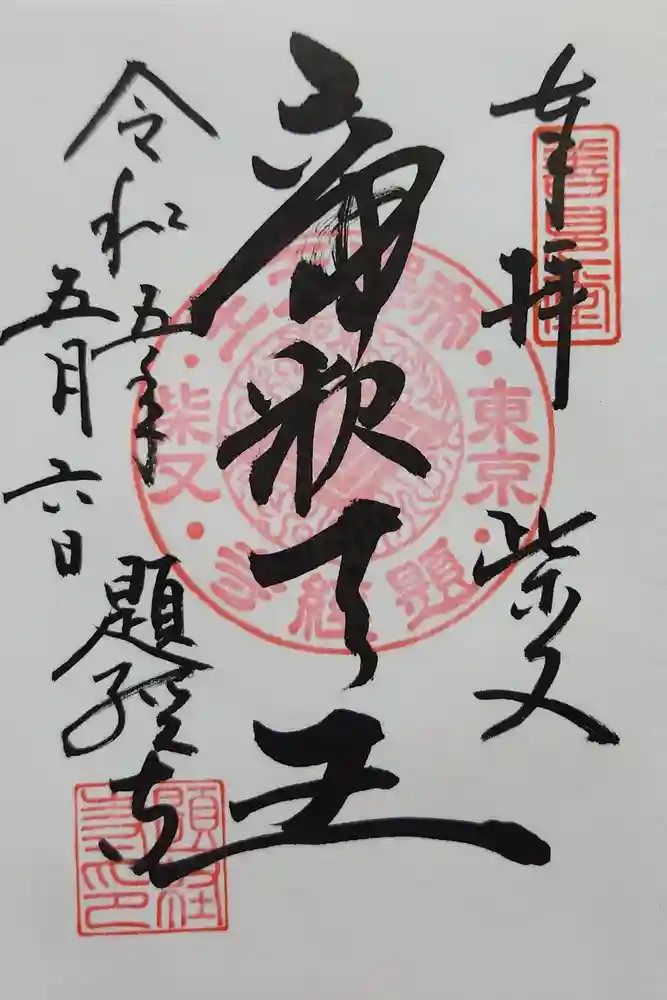 奉拝
柴又
帝釈天王
令和五年
五月六日
題経寺
帝釈天王
東京
柴又
題経寺
題経寺印